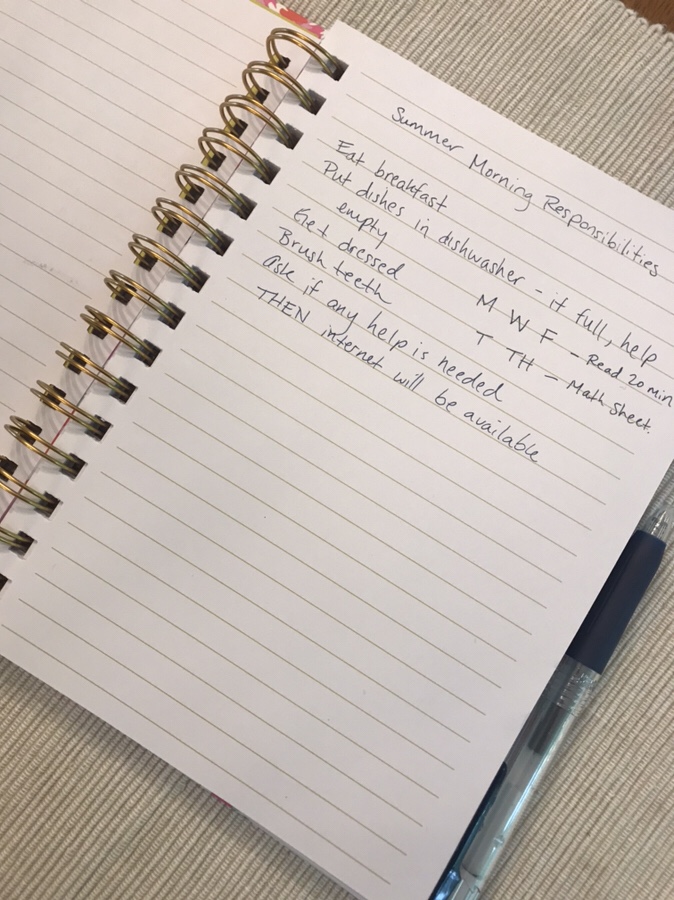 Summer Morning Responsibilities
Eat breakfast
Put dishes in dishwasher - if full, help
empty
Get dressed
Brush teeth
M W F - Read 20 min
T TH - Math Sheet.
ask if any help is needed
THEN internet will be available